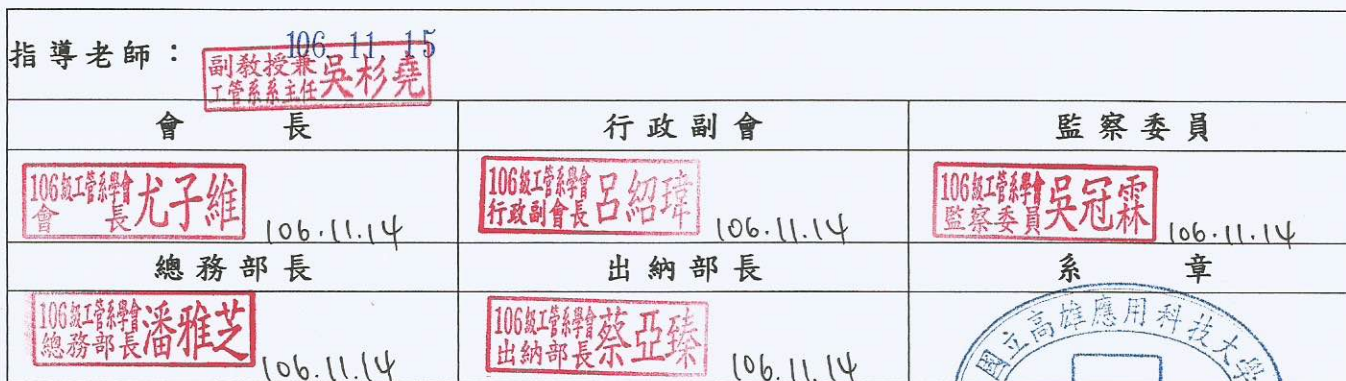 指導老師：
106. 11. 15
副教授兼
工管系系主任 吳杉堯
會 長
行政副會
監察委員
106級工管系學會
會 長 尤子維
106.11.14
106級工管系學會
行政副會長 呂紹瑋
106.11.14
106級工管系學會
監察委員 吳冠霖
106.11.14
總務部長
出納部長
系 章
106級工管系學會
總務部長 潘雅芝
106.11.14
106級工管系學會
出納部長 蔡亞臻
106.11.14
國立高雄應用科技大學